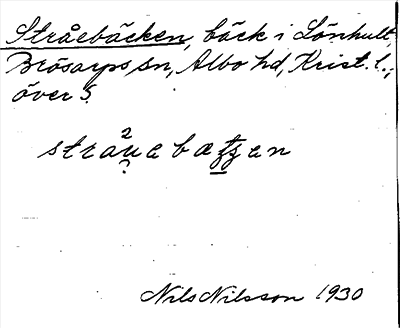 Stråebäcken, bäck i Lönhult,
Brösarps sn, Albo hd, Krist. l.,
över 5.
Nils Nilsson 1930